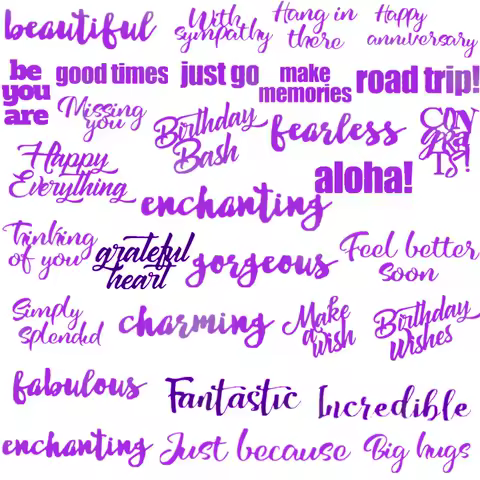 beautiful
With
sympathy
Hang in
there
Happy
anniversary
be
you
are
good times
just go
make
memories
road trip!
Missing
you
Birthday
Bash
fearless
CON
GRA
TS!
Happy
Everything
aloha!
enchanting
Thinking
of you
grateful
heart
gorgeous
Feel better
soon
Simply
splendid
charming
Make
a
wish
Birthday
Wishes
fabulous
Fantastic
Incredible
enchanting
Just because
Big hugs